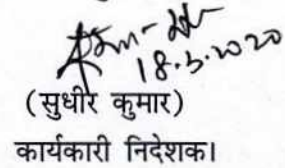 18.5.2020
(सुधीर कुमार)
कार्यकारी निदेशक।